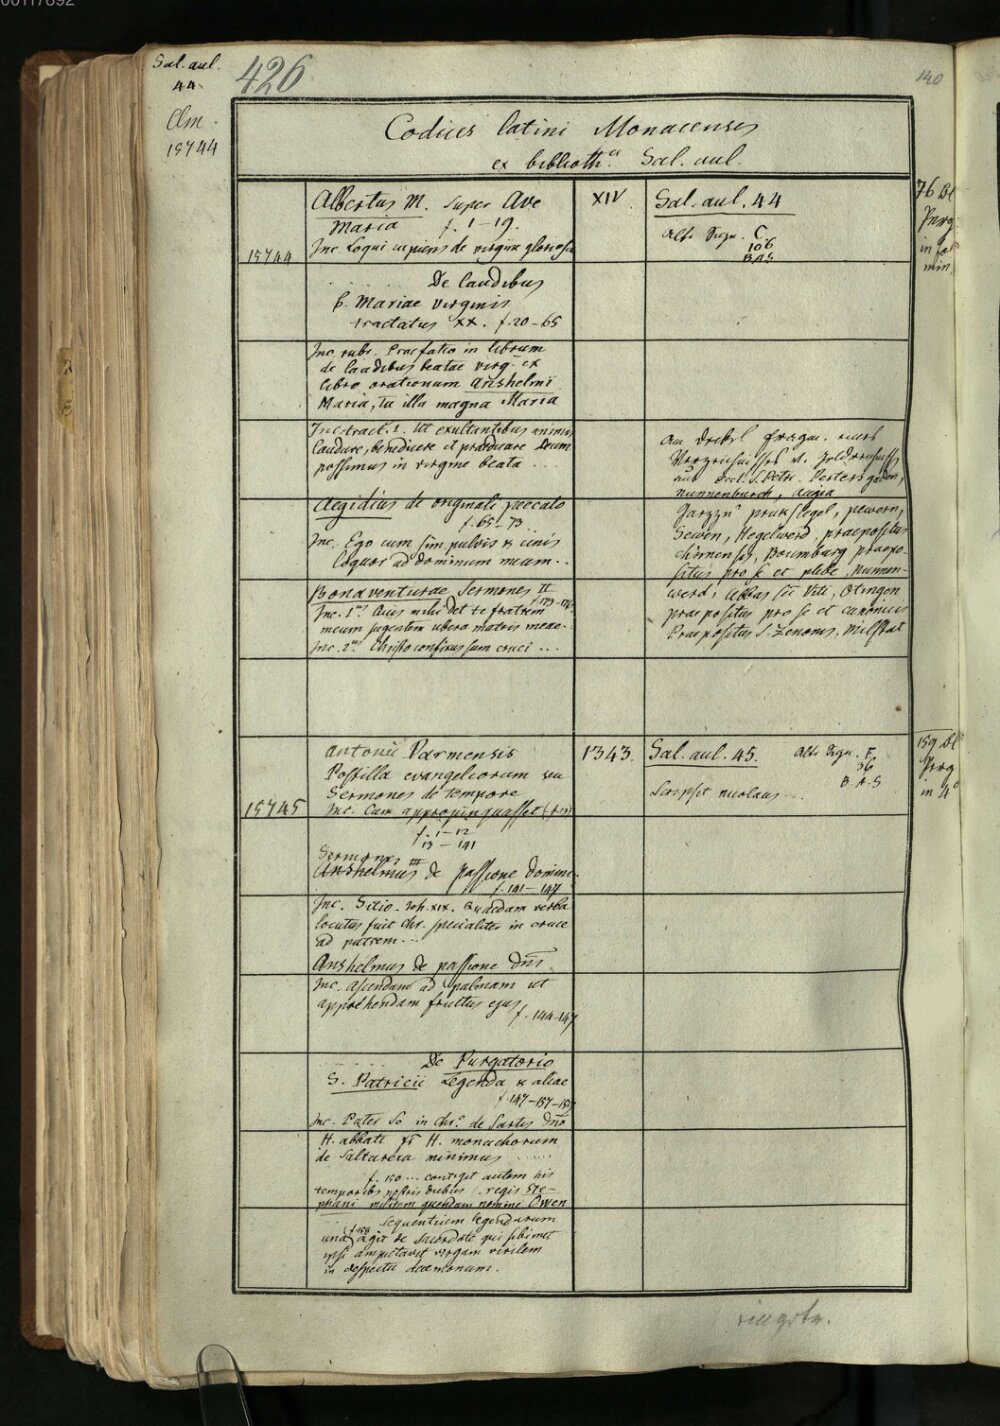 00117892
Sal. aul.
44.
Clm.
15744
426
140
Codices latini Monacenses
ex biblioth.ca Sal. aul.
15744
Albertus M. super Ave
Maria f. 1-19.
Inc. Loqui cupiens de virgine gloriosa
XIV.
Sal. aul. 44
Alte Sign. C.
106
B.A.S
76 Bl
Perg
in fo
min.
De laudibus
b. Mariae virginis
tractatus XX. f. 20-65
Inc. rubr. Praefatio in librum
de laudibus beatae virg. ex
libro orationum Anshelmi
Maria, tu illa magna Maria
Inc. tract. 1. Ut exultantibus animis
laudare, benedicere et praedicare Deum
possimus in virgine beata ....
Am Deckel fragm. eines
S. Petri
nunnenburch, augia
Aegidius de originali peccato
f. 65-73
Inc. Ego cum sim pulvis & cinis
loquar ad dominum meum..
Sewen, Hegelwerd, praepositus
chimensis, Boumburg praepo-
situs pro se et plebe, nunnen-
werd, abbas Sti Viti, Otingen
praepositus pro se et canonicis
Praepositus S. Zenonis, Milstat
Bonaventurae Sermones II
f. 173-176
Inc. 1us Quis mihi det te fratrem
meum sugentem ubera matris meae.
Inc. 2us Christo confixus sum cruci ...
15745
Antonii Parmensis
Postilla evangeliorum seu
Sermones de tempore
Inc. Cum appropinquasset (f. 13)
f. 1-12
13-141
1343.
Sal. aul. 45.
Alte Sign. F.
36
B.A.S
Scripsit nicolaus
159 Bl
Perg
in 4o
Sermones III
Anshelmus de passione domini
f. 141-147
Inc. Sitio. Joh. XIX. Quaedam verba
locutus fuit Chr. specialiter in cruce
ad patrem...
Anshelmus de passione dni
Inc. Ascendam ad palmam ut
apprehendam fructus ejus,
f. 144-147
De Purgatorio
S. Patricii Legenda & aliae
f. 147-157-159
Inc. Pater So in Chro. de Sartis dno
H. abbati fr H. monachorum
de Saltareia minimus
f. 150 ... contigit autem his
temporibs nostris diebus s. regis Ste-
phani militem quendam nomine Owen
Sequentium legendarum
una f. 158 agit de sacerdote qui sibimet
ipsi amputavit virgam virilem
in despectu daemonum.